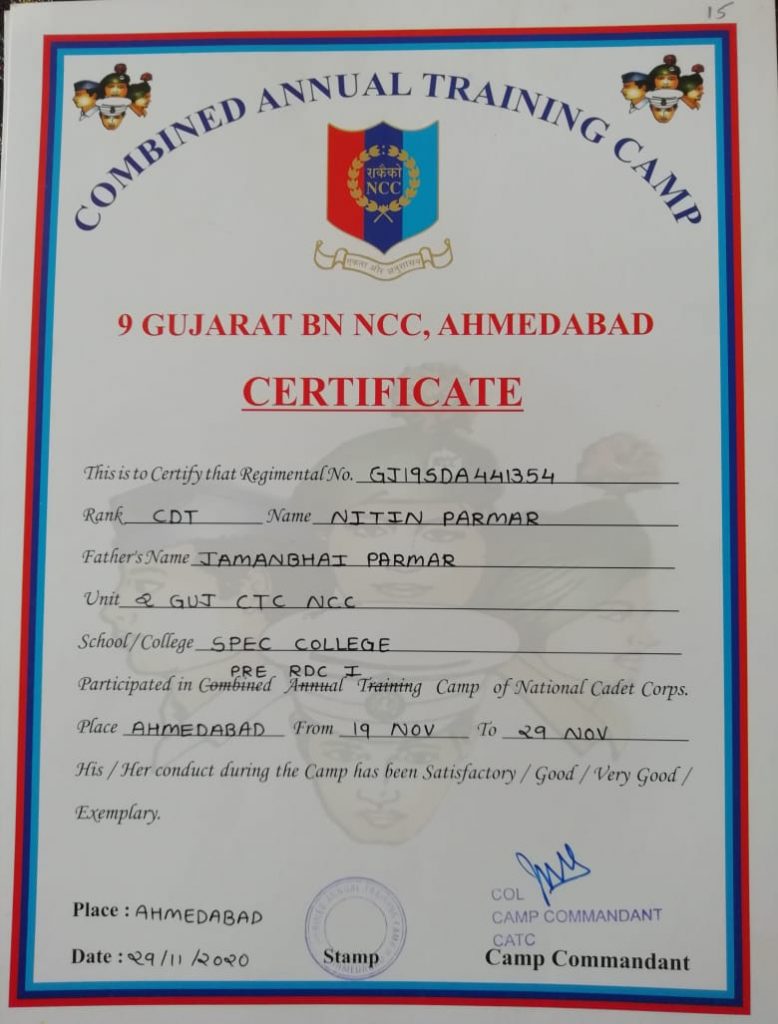 15
COMBINED ANNUAL TRAINING CAMP
राकैको
NCC
एकता और अनुशासन
9 GUJARAT BN NCC, AHMEDABAD
CERTIFICATE
This is to Certify that Regimental No. GJ19SDA441354
Rank CDT Name NITIN PARMAR
Father's Name JAMANBHAI PARMAR
Unit 2 GUJ CTC NCC
School/College SPEC COLLEGE
PRE RDC I
Participated in Combined Annual Training Camp of National Cadet Corps.
Place AHMEDABAD From 19 NOV To 29 NOV
His / Her conduct during the Camp has been Satisfactory / Good / Very Good /
Exemplary.
COL
CAMP COMMANDANT
CATC
Place : AHMEDABAD
Date : 29/11/2020 Stamp Camp Commandant